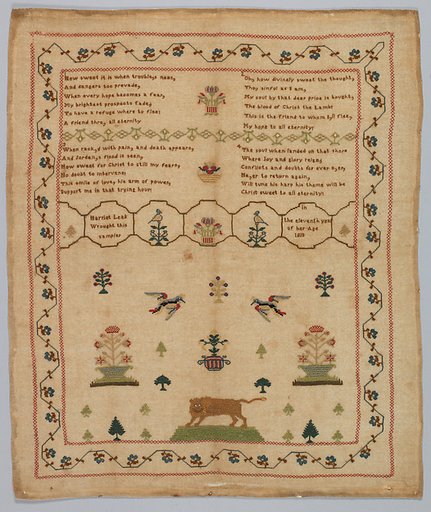 How sweet it is when troubles near,
And dangers too prevade,
When every hope becomes a fear,
My brightest prospects fade;
We have a refuge where to flee;
A friend thro, all eternity.
Oh, how divinely sweet the thought,
Thoy sinful as I am,
My soul by that dear price is bought;
The blood of Christ the Lamb!
This is the friend to whom I,ll flee,
My hope to all eternity!
When rack,d with pain, and death appears,
And Jordan,s flood is seen,
How sweet for Christ to still my fears,
No doubt to intervene:
This smile of love, his arm of power,
Support me in that trying hour:
The soul when landed on that shore
Where Joy and glory reign,
Conflicts and doubts for ever o,er,
Ne,er to return again,
Will tune his harp his theme will be
Christ sweet to all eternity!
Harriet Lead
Wrought this
sampler
in
the eleventh year
of her Age